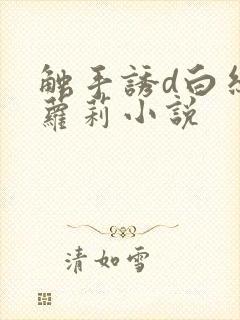 触手誘d白
蘿莉小説
清如雪